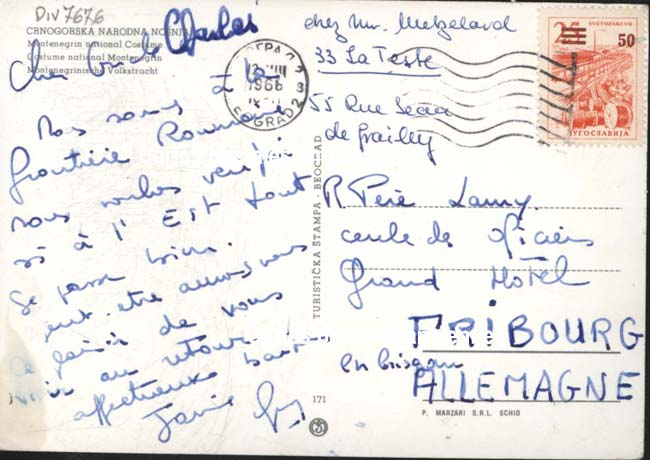 Div 7676
CRNOGORSKA NARODNA NOŠNJA
Montenegrin national Costume
Costume national Montenegrin
Montenegrinische Volkstracht
Cher Oncle Charles
Nous sommes à la
frontière Roumaine
nous voulons vérifier
si à l'Est tout
se passe bien.
peut-être aurons nous
le plaisir de vous
voir au retour
affectueux baisers
BEOGRAD 2
1966
BEOGRAD 2
СВЕТОЗАРЕВО
25
50
ЈУГОСЛАВИЈА
TURISTIČKA ŠTAMPA - BEOGRAD
171
chez Mr.
33 La Teste
55 Rue
de Grailly
R. Père Lamy
cercle de officiers
Grand Hotel
FRIBOURG
en brisgau
ALLEMAGNE
P. MARZARI S.R.L. SCHIO